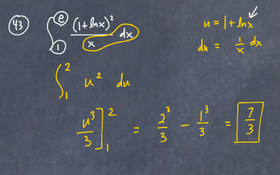 43 ∫₁ᵉ (1+lnx)²/x dx
u = 1 + lnx
du = 1/x dx
∫₁² u² du
u³/3 ]₁² = 2³/3 − 1³/3 = 7/3